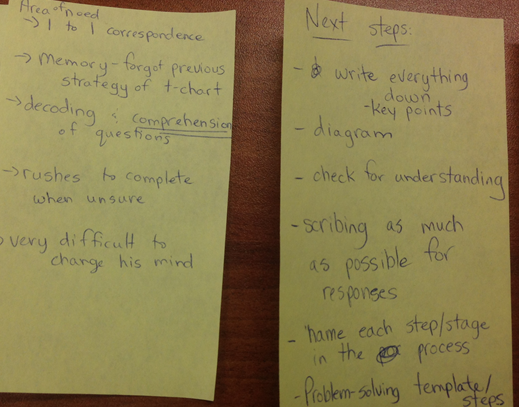 Area of need
→ 1 to 1 correspondence
→ Memory - forgot previous
strategy of t-chart
→ decoding & comprehension
of questions
→ rushes to complete
when unsure
→ very difficult to
change his mind
Next steps:
- write everything
down
- key points
- diagram
- check for understanding
- scribing as much
as possible for
responses
- name each step/stage
in the process
- Problem-solving template/
steps